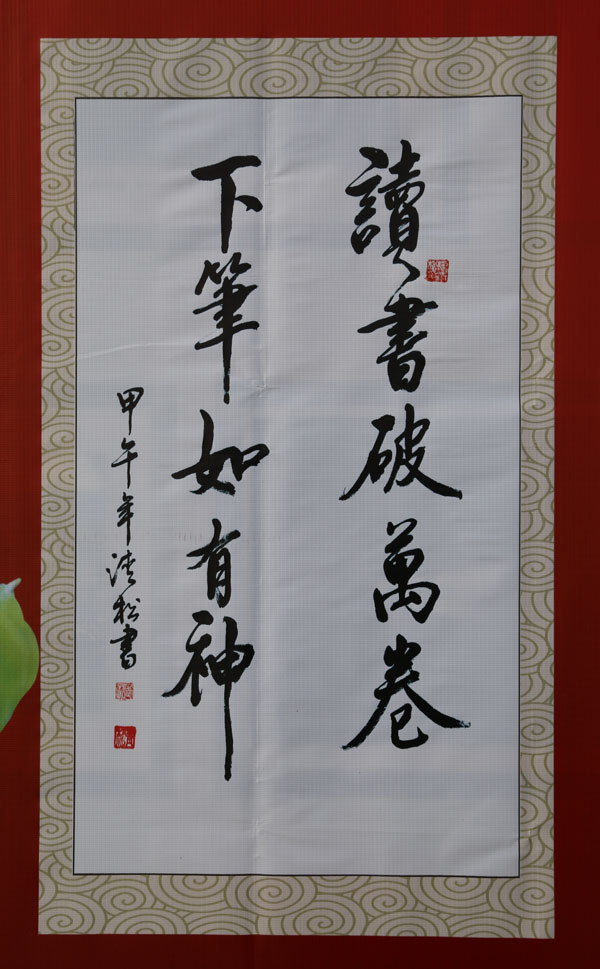 讀書破萬卷
下筆如有神
甲午年清松書